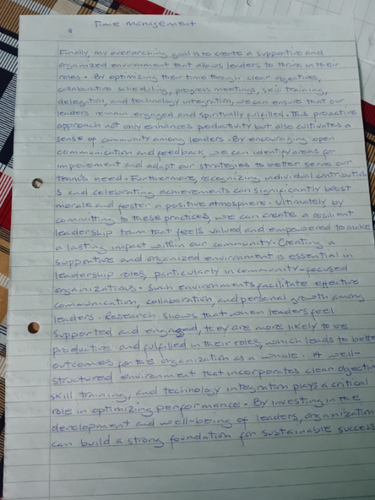 Time management
Finally, my overarching goal is to create a supportive and
organized environment that allows leaders to thrive in their
roles. By optimizing their time through clear objectives,
collaborative scheduling, progress meetings, skill training,
delegation, and technology integration, we can ensure that our
leaders remain engaged and spiritually fulfilled. This proactive
approach not only enhances productivity but also cultivates a
sense of community among leaders. By encouraging open
communication and feedback, we can identify areas for
improvement and adapt our strategies to better serve our
team's need. Furthermore, recognizing individual contribution
s and celebrating achievements can significantly boost
morale and foster a positive atmosphere. Ultimately by
committing to these practices, we can create a resilient
leadership team that feels valued and empowered to make
a lasting impact within our community. Creating a
supportive and organized environment is essential in
leadership roles, particularly in community-focused
organizations. Such environments facilitate effective
communication, collaboration, and personal growth among
leaders. Research shows that when leaders feel
supported and engaged, they are more likely to be
productive and fulfilled in their roles, which leads to better
outcomes for the organization as a whole. A well-
structured environment that incorporates clean objectiv
skill training, and technology integration plays a critical
role in optimizing performance. By investing in the
development and well-being of leaders, organization
can build a strong foundation for sustainable success